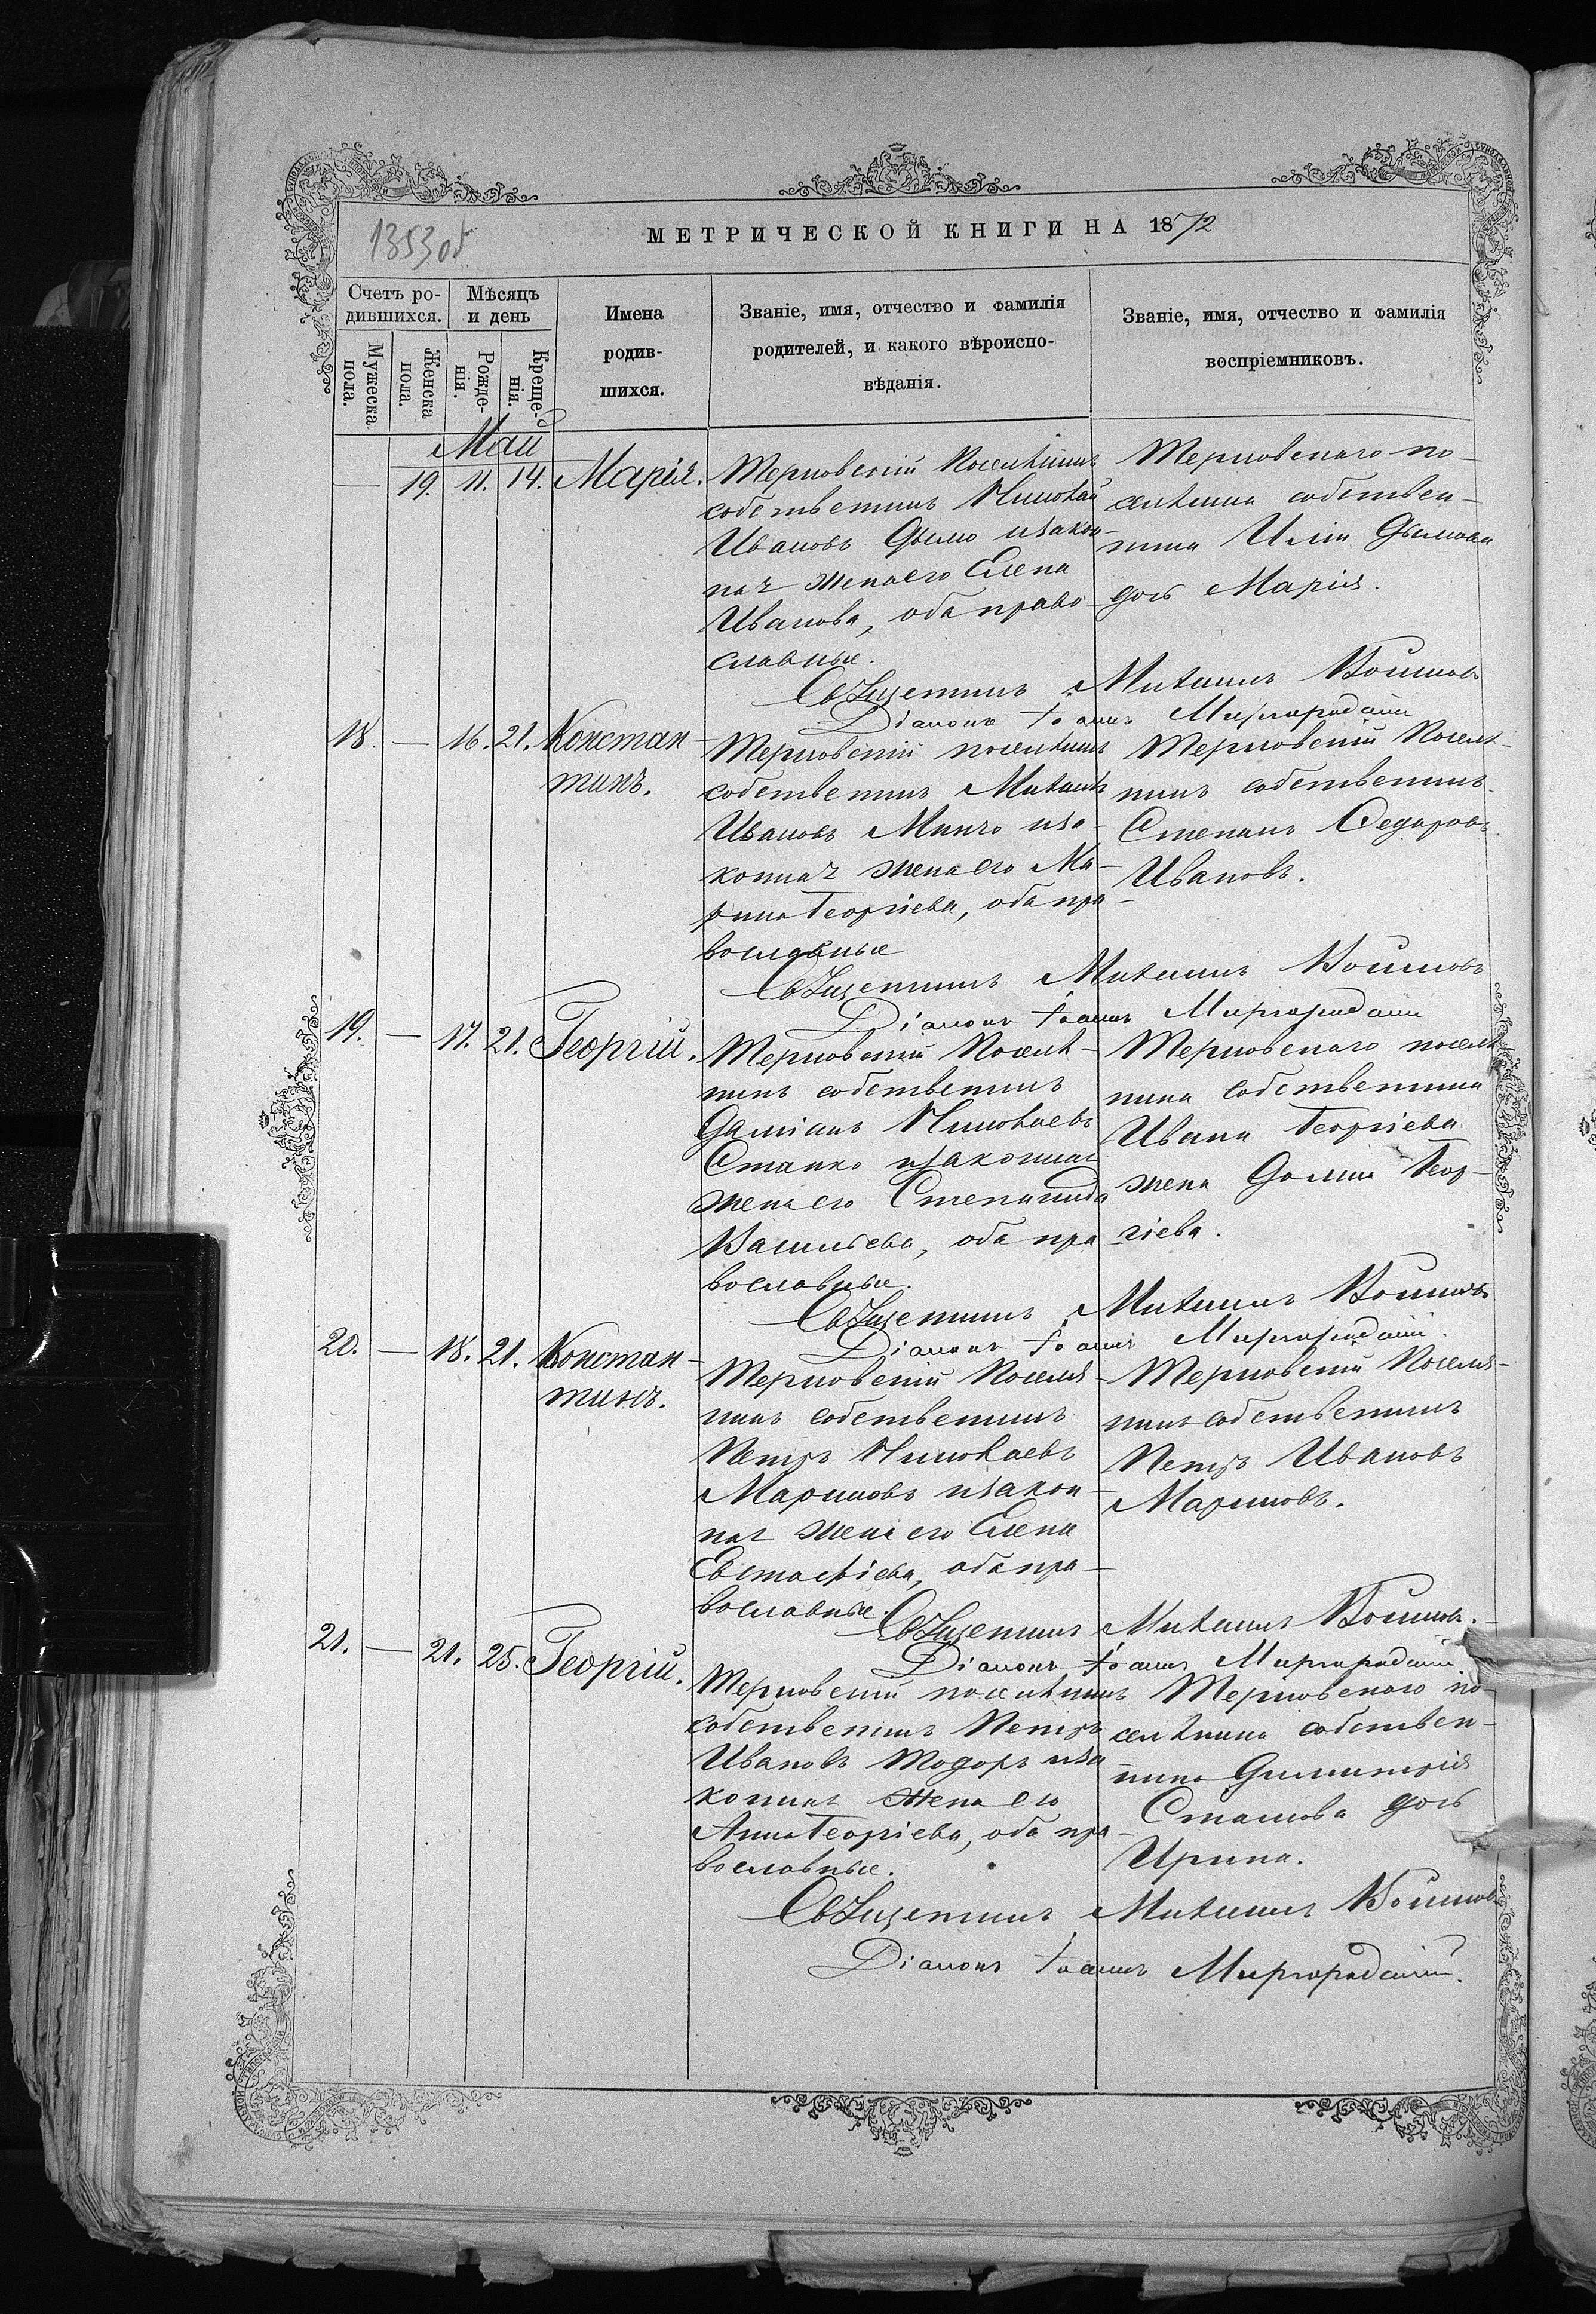 1353 об
МЕТРИЧЕСКОЙ КНИГИ НА 1872
Счетъ ро-
дившихся.
Мѣсяцъ
и день
Мужеска
пола.
Женска
пола.
Рожде-
нія.
Креще-
нія.
Имена
родив-
шихся.
Званіе, имя, отчество и фамилія
родителей, и какого вѣроиспо-
вѣданія.
Званіе, имя, отчество и фамилія
воспріемниковъ.
Май
— 19. 11. 14. Марія.
Терновскій Поселянинъ
собственникъ Николай
Ивановъ Дымо и закон-
ная жена его Елена
Иванова, оба право-
славные.
Терновскаго по-
селянина собствен-
ника Иліи Дымова
дочь Марія.
Священникъ Михаилъ Войновъ
Діаконъ Іоаннъ Миргородскій
18. — 16. 21. Констан-
тинъ.
Терновскій поселянинъ
собственникъ Михаилъ
Ивановъ Минчо и за-
конная жена его Ма-
рина Георгіева, оба пра-
вославные
Терновскій Поселя-
нинъ собственникъ
Стефанъ Ѳедоровъ
Ивановъ.
Священникъ Михаилъ Войновъ
Діаконъ Іоаннъ Миргородскій
19. — 17. 21. Георгій.
Терновскій Поселя-
нинъ собственникъ
Даміанъ Николаевъ
Станко и законная
жена его Степанида
Васильева, оба пра-
вославные.
Терновскаго поселя-
нина собственника
Ивана Георгіева
жена Домна Геор-
гіева.
Священникъ Михаилъ Войновъ
Діаконъ Іоаннъ Миргородскій
20. — 18. 21. Констан-
тинъ.
Терновскій Поселя-
нинъ собственникъ
Петръ Николаевъ
Мариновъ и закон-
ная жена его Елена
Евстафіева, оба пра-
вославные.
Терновскій Поселя-
нинъ собственникъ
Петръ Ивановъ
Мариновъ.
Священникъ Михаилъ Войновъ.
Діаконъ Іоаннъ Миргородскій.
21. — 21. 25. Георгій.
Терновскій поселянинъ
собственникъ Петръ
Ивановъ Тодоръ и за
конная жена его
Анна Георгіева, оба пра-
вославные.
Терновскаго по-
селянина собствен-
ника Димитрія
Станкова дочь
Ирина.
Священникъ Михаилъ Войновъ
Діаконъ Іоаннъ Миргородскій.